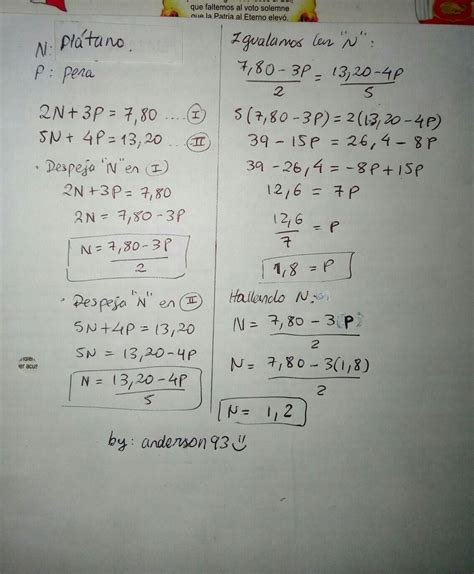 que faltemos al voto solemne
que la Patria al Eterno elevó.
N: Plátano.
P: pera
2N + 3P = 7,80 .... I
5N + 4P = 13,20 .... II
• Despeja "N" en I
2N + 3P = 7,80
2N = 7,80 - 3P
N = 7,80 - 3P / 2
• Despeja "N" en II
5N + 4P = 13,20
5N = 13,20 - 4P
N = 13,20 - 4P / 5
Igualamos las "N":
7,80 - 3P / 2 = 13,20 - 4P / 5
5(7,80 - 3P) = 2(13,20 - 4P)
39 - 15P = 26,4 - 8P
39 - 26,4 = -8P + 15P
12,6 = 7P
12,6 / 7 = P
1,8 = P
Hallando N:
N = 7,80 - 3(P) / 2
N = 7,80 - 3(1,8) / 2
N = 1,2
by: anderson93